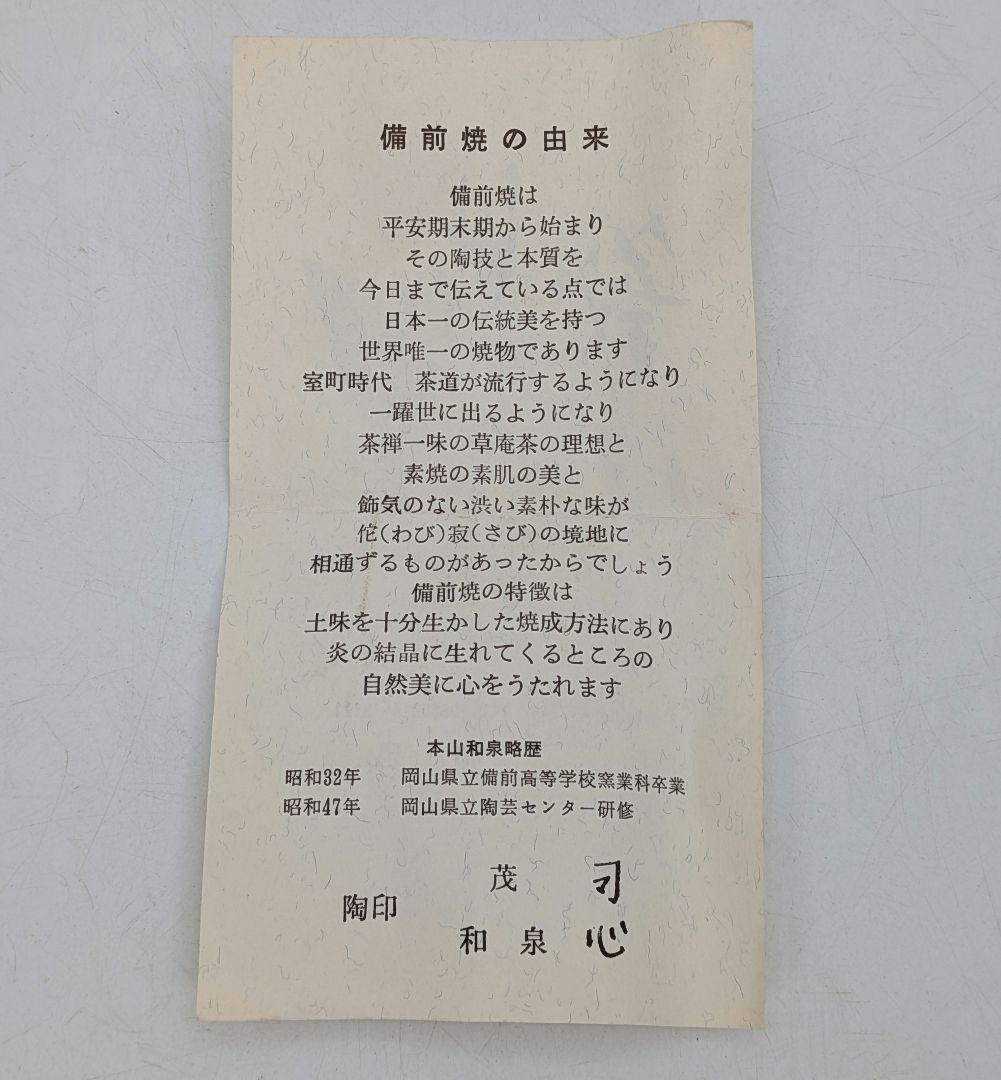 備前焼の由来
備前焼は
平安期末期から始まり
その陶技と本質を
今日まで伝えている点では
日本一の伝統美を持つ
世界唯一の焼物であります
室町時代　茶道が流行するようになり
一躍世に出るようになり
茶禅一味の草庵茶の理想と
素焼の素肌の美と
飾気のない渋い素朴な味が
佗(わび)寂(さび)の境地に
相通ずるものがあったからでしょう
備前焼の特徴は
土味を十分生かした焼成方法にあり
炎の結晶に生れてくるところの
自然美に心をうたれます
本山和泉略歴
昭和32年　岡山県立備前高等学校窯業科卒業
昭和47年　岡山県立陶芸センター研修
陶印
茂
和泉